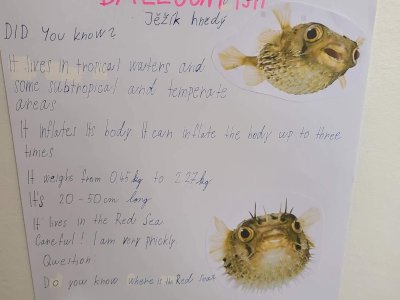 BALLOONFISH
Ježík hnedý
DID You know?
It lives in tropical waters and
some subtropical and temperate
areas
It inflates its body It can inflate the body up to three
times
It weighs from 0.45 kg to 2.27 kg
It's 20 - 50 cm long
It lives in the Red Sea
Careful! I am very prickly
Question
Do you know where is the Red Sea?